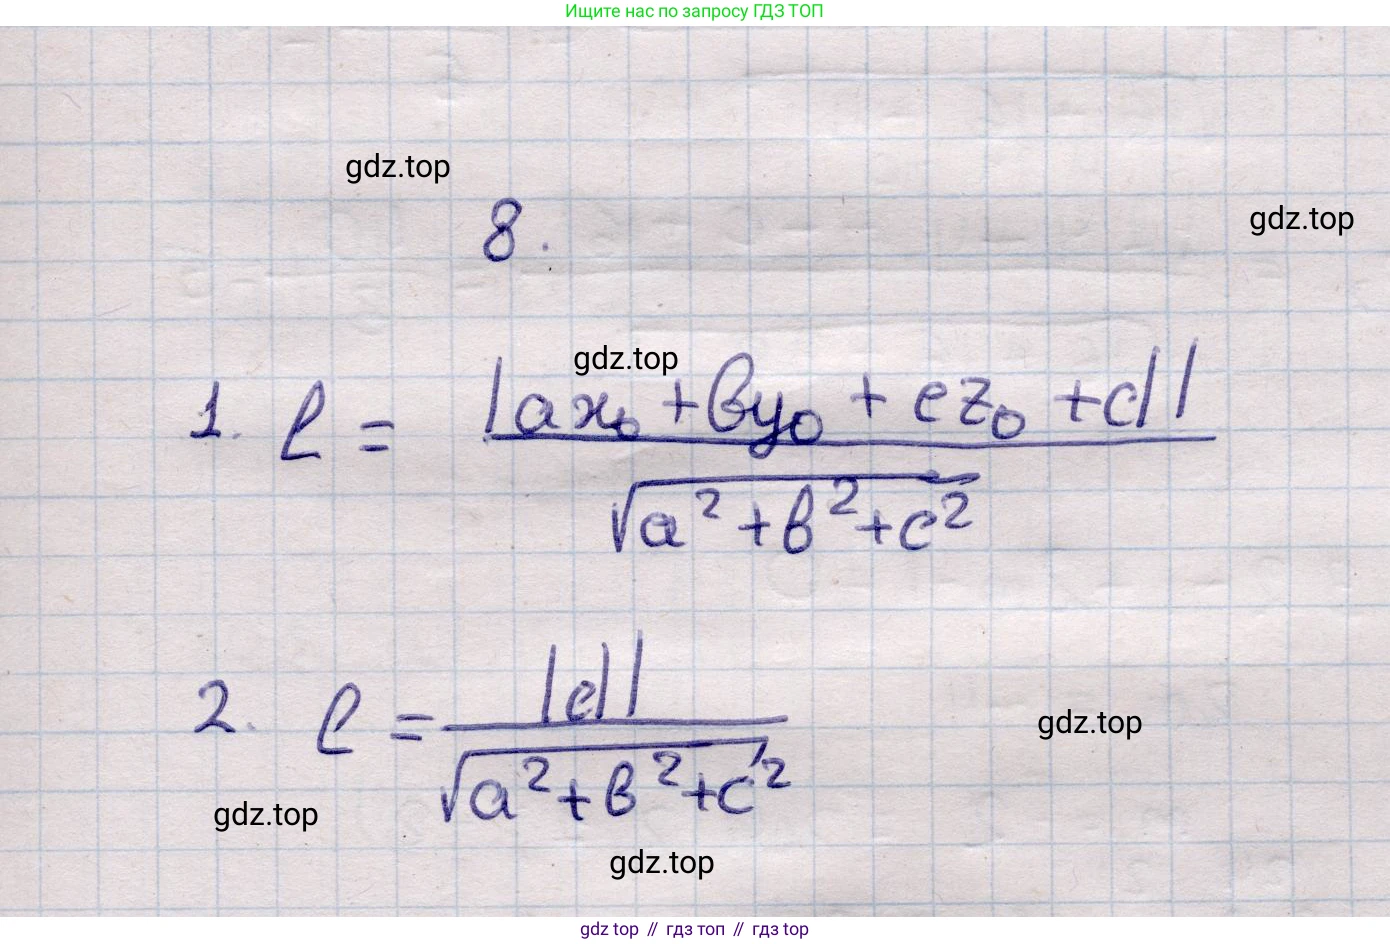 Ищите нас по запросу ГДЗ ТОП
gdz.top
8.
gdz.top
gdz.top
1. l = |ax₀ + вy₀ + cz₀ + d| / √(a² + в² + c²)
2. l = |d| / √(a² + в² + c²)
gdz.top
gdz.top
gdz.top
gdz top // гдз топ // гдз top